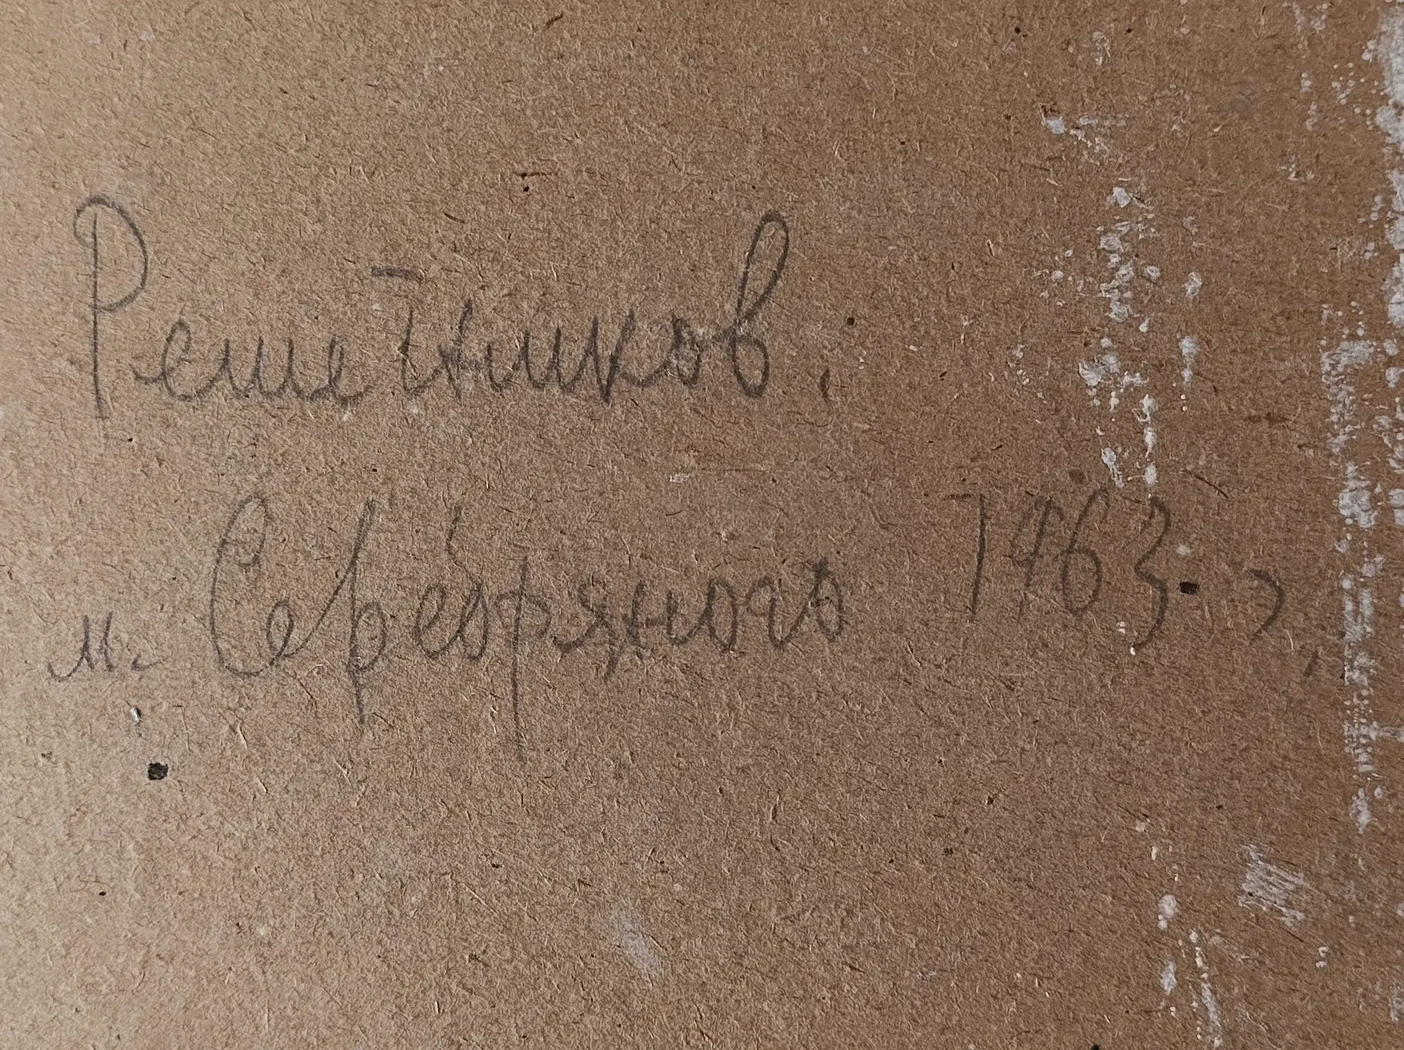 Решетников.
м. Серебряного 1963.